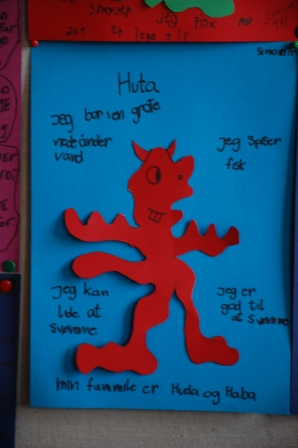 jeg fisk
det er
Simon
Huta
jeg bor i en grote
nede under
vand
jeg Spiser
fisk
jeg kan
lide at
Svømme
jeg er
god til
at Svømme
min fammile er Huda og Haba